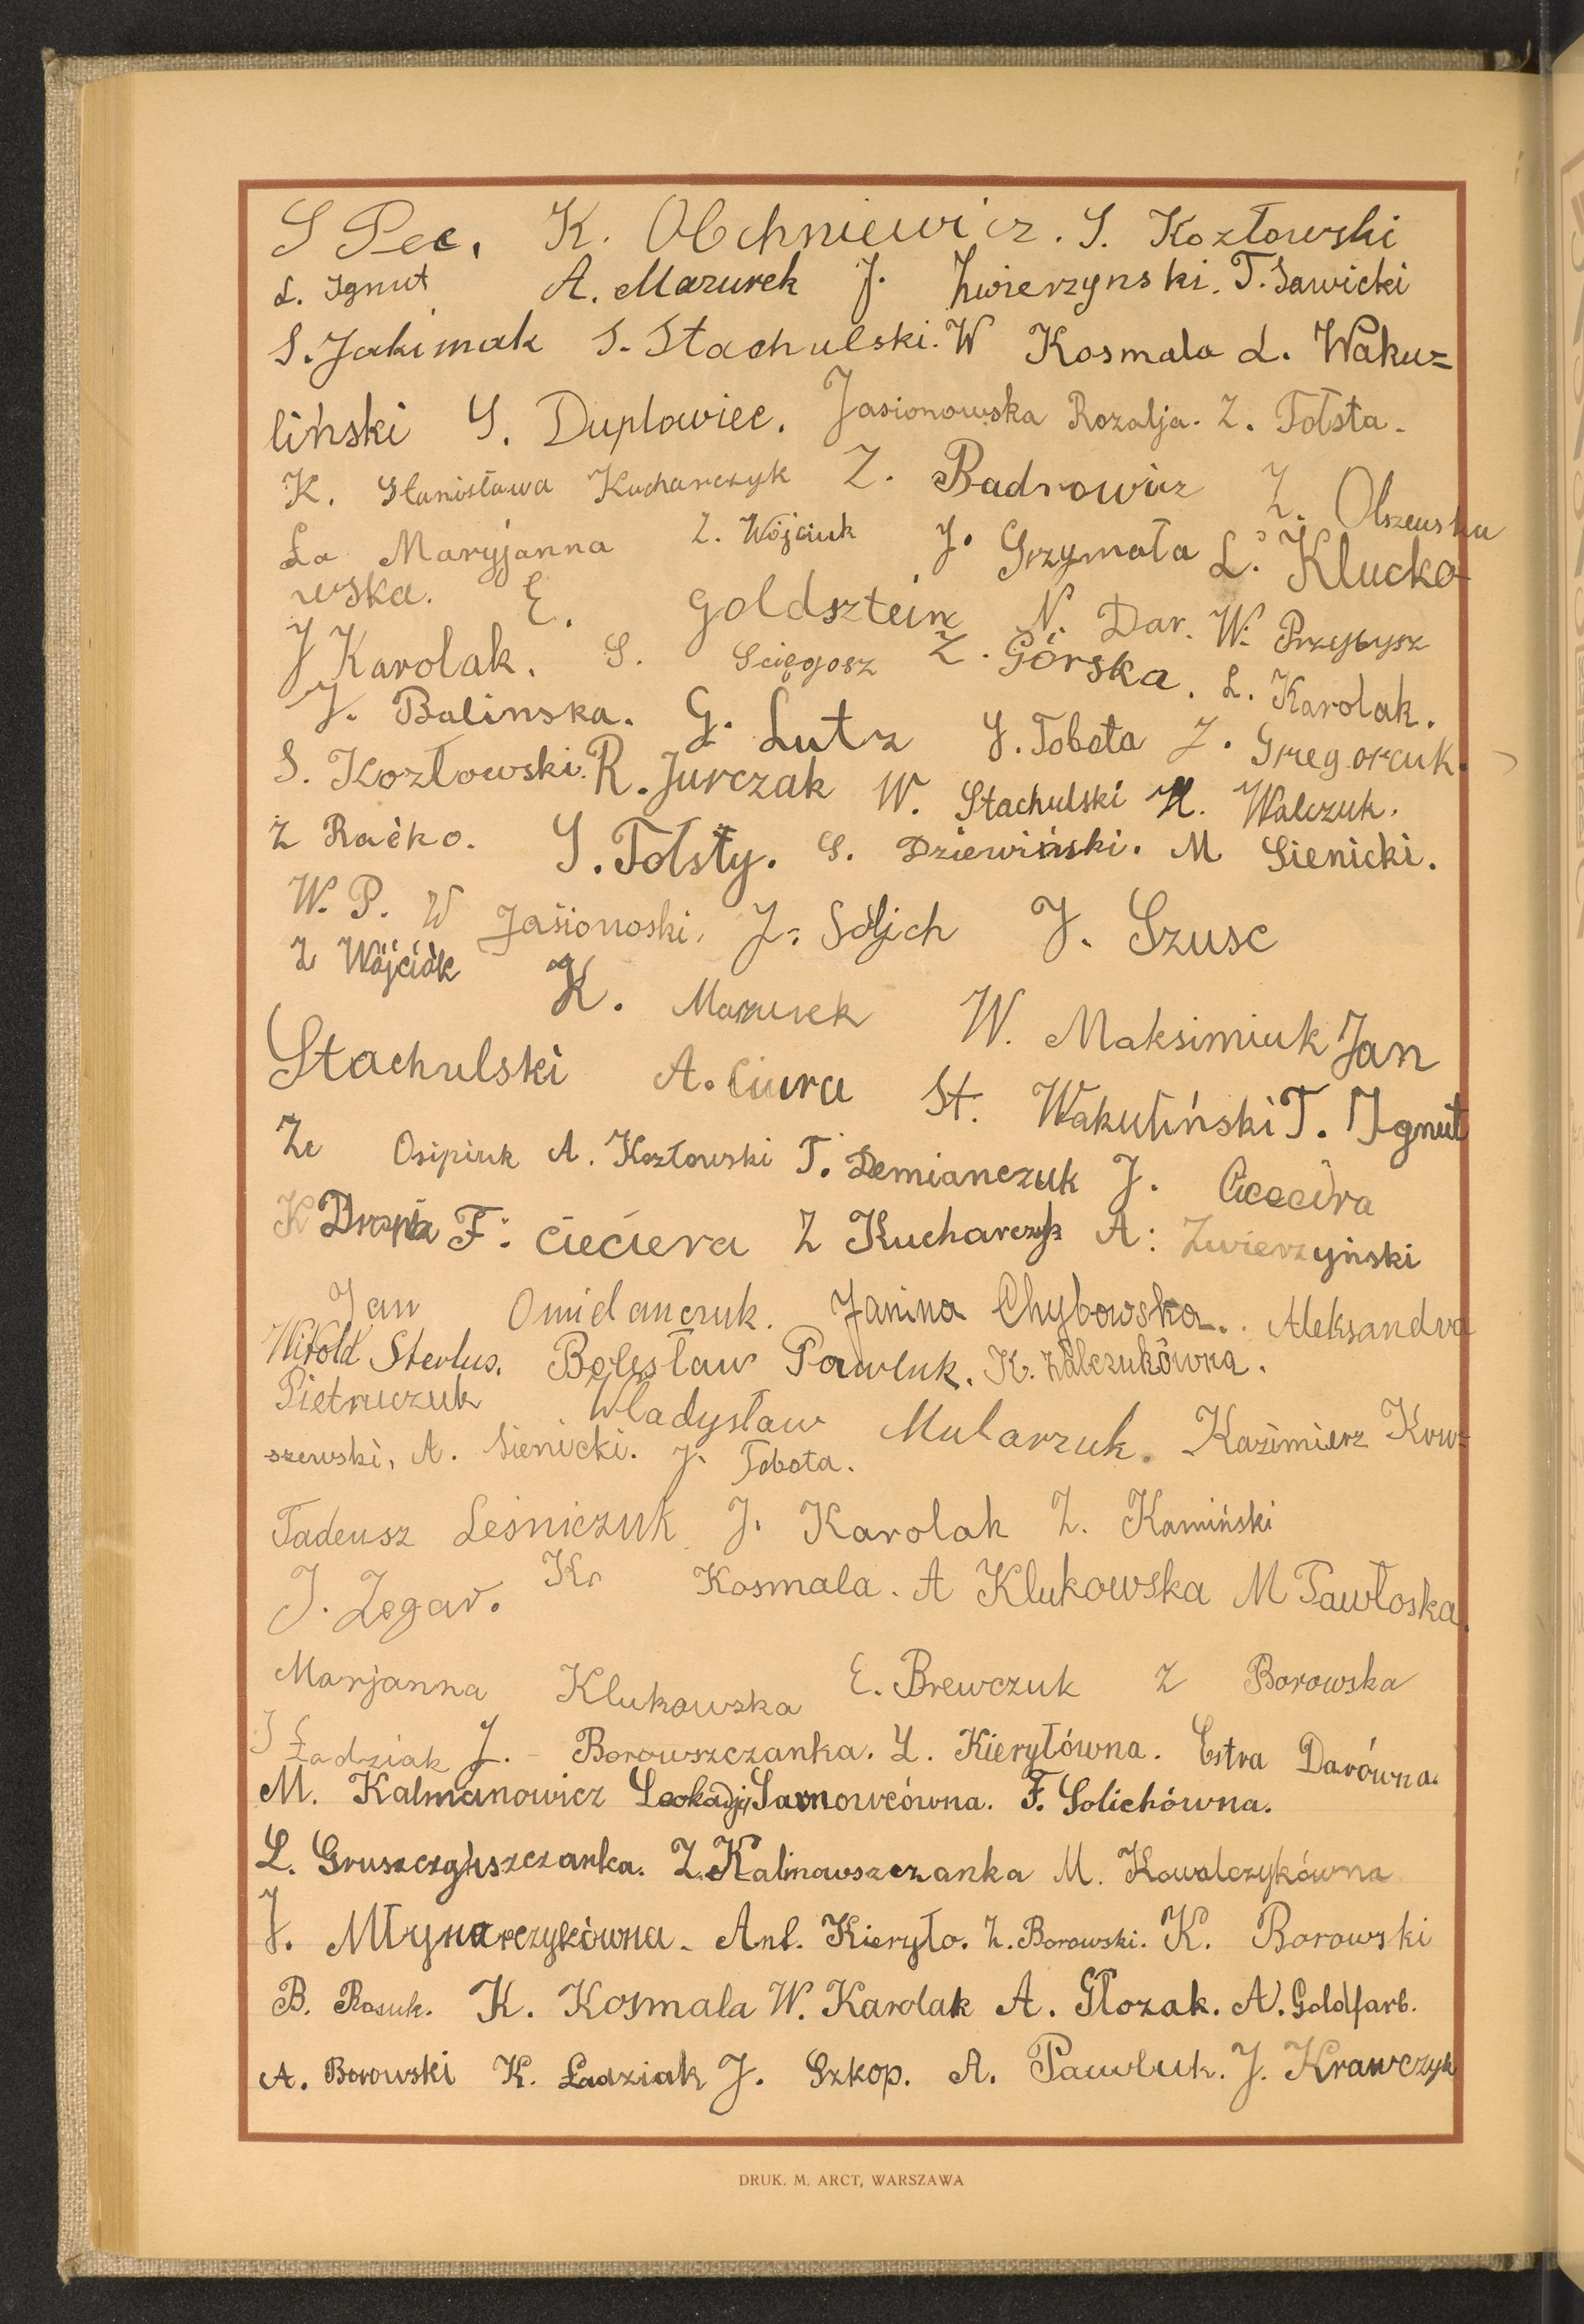 S Pec. K. Olchniewicz. S. Kozłowski
L. Ignut A. Mazurek J. Zwierzynski. T. Sawicki
S. Jakimak S. Stachulski. W Kosmala L. Waku=
liński S. Duplowiec. Jasionowska Rozalja. Z. Tołsta.
K. Stanisława Kucharczyk Z. Badrowicz Z. Olszewska
La Maryjanna Z. Wójciuk J. Grzymała L. Klucko
wska. E. Goldsztein N. Dar. W. Przybysz
J Karolak. S. Ścięgosz Z. Górska. L. Karolak.
J. Balinska. G. Lutz S. Tobota Z. Gregorcuk.
S. Kozłowski. R. Jurczak W. Stachulski H. Walczuk.
Z Raćko. S. Tołsty. S. Dziewiński. M Sienicki.
W. P. W Jasionoski. J. Soljch J. Szusc
Z Wójcićk K. Mazurek W. Maksimiuk Jan
Stachulski A. Ciura St. Wakuliński T. Ignut
Ze Osipiuk A. Kozłowski T. Demianczuk J. Ciecira
K F. Cieciera Z Kucharczyk A: Zwierzyński
Jan Omielanczuk. Janina Chybowska. Aleksandra
Witold Sterlus. Bolesław Pawluk. K. Walczukówna.
Pietruczuk Władysław Mularzuk. Kazimierz Kow=
szewski, A. Sienicki. J. Tobota.
Tadeusz Leśniczuk J. Karolak Z. Kamiński
J. Zegar. Kr Kosmala. A Klukowska M Pawłoska.
Marjanna Klukowska E. Brewczuk Z Borowska
J Ładziak J. - Borowszczanka. L. Kieryłówna. Estra Darówna.
M. Kalmanowicz Leokadja Sarnowcówna. F. Solichówna.
L. Gruszczyńszczanka. Z. Kalinowszczanka M. Kowalczykówna
J. Młynarczykówna. Ant. Kieryło. Z. Borowski. K. Borowski
B. Rosuk. K. Kosmala W. Karolak A. Głozak. N. Goldfarb.
A. Borowski K. Ładziak J. Szkop. A. Pawluk. J. Krawczyk
DRUK. M. ARCT, WARSZAWA